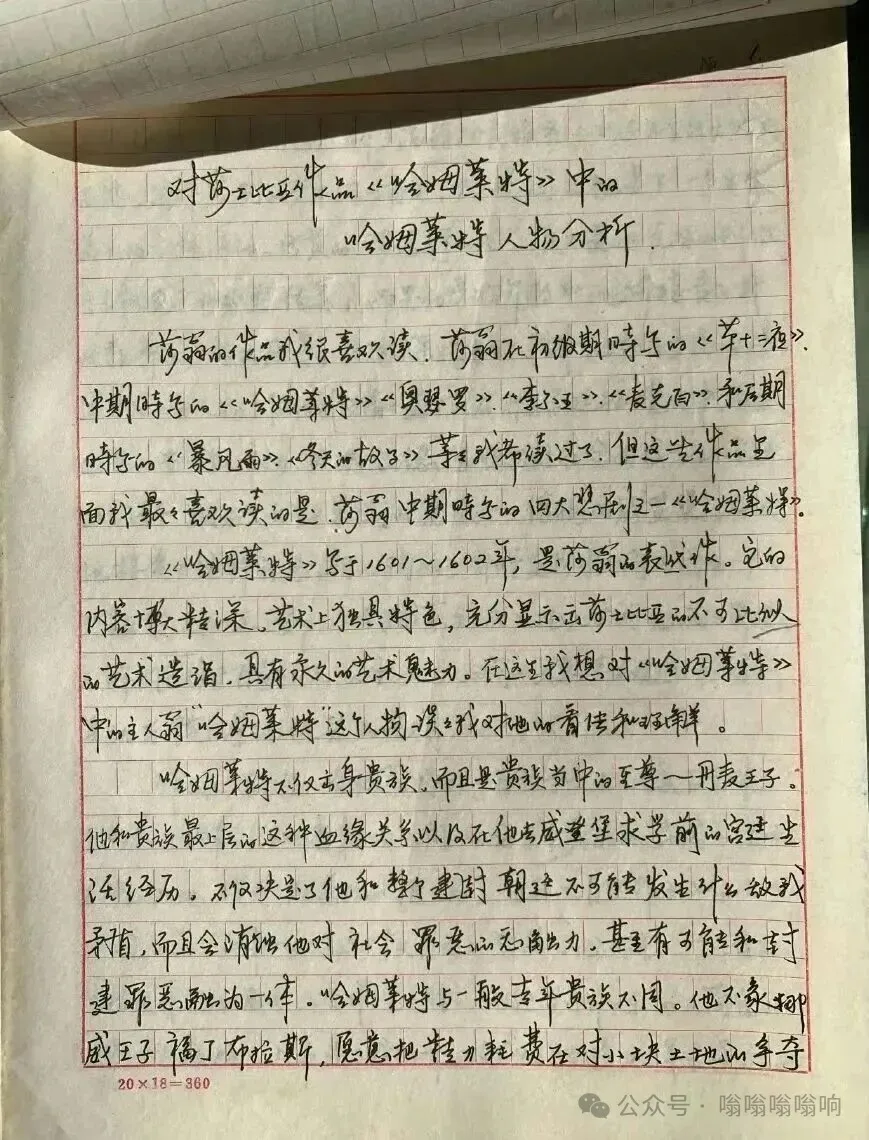 No 1
对莎士比亚作品《哈姆莱特》中的
哈姆莱特人物分析.
莎翁的作品我很喜欢读.莎翁在初级期時写的《第十二夜》.
中期時写的《哈姆莱特》《奥瑟罗》.《李尔王》.《麦克白》.和后期
時写的《暴风雨》.《冬天的故事》等等我都读过了.但这些作品里
面我最最喜欢读的是.莎翁中期時写的四大悲剧之一《哈姆莱特》。
《哈姆莱特》写于1601～1602年,是莎翁的表代作。它的
内容博大精深.艺术上独具特色,充分显示出莎士比亚的不可比拟
的艺术造诣.具有永久的艺术魅力。在这里我想对《哈姆莱特》
中的主人翁“哈姆莱特”这个人物谈谈我对他的看法和理解。
哈姆莱特不仅出身贵族.而且是贵族当中的至尊—丹麦王子。
他和贵族最上层的这种血缘关系以及在他去威登堡求学前的宫廷生
活经历.不仅决定了他和整个建封朝廷不可能发生什么敌我
矛盾,而且会消蚀他对社会罪恶的 力.甚至有可能和封
建罪恶融为一体.哈姆莱特与一般青年贵族不同。他不象挪
威王子福丁布拉斯,愿意把精力耗费在对小块土地的争夺
20×18=360
公众号·嗡嗡嗡嗡响